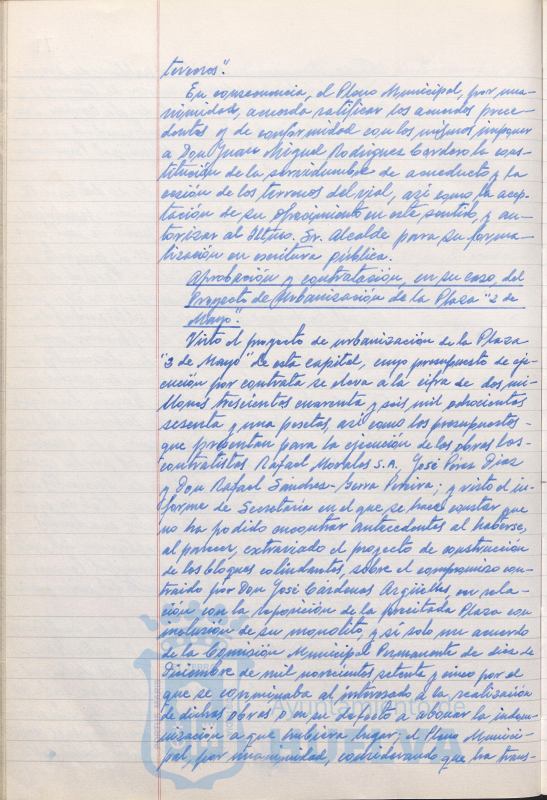 terrenos".
En consecuencia, el Pleno Municipal, por una-
nimidad, acuerda ratificar los acuerdos prece-
dentes y de conformidad con los mismos imponer
a Don Juan Miguel Rodríguez Cordero la cons-
titución de la servidumbre de acueducto y la
cesión de los terrenos del vial, así como, la acep-
tación de su ofrecimiento en este sentido, y au-
torizar al Iltmo. Sr. Alcalde para su forma-
lización en escritura pública.
Aprobación y contratación, en su caso, del
Proyecto de Urbanización de la Plaza "2 de
Mayo".
Visto el proyecto de urbanización de la Plaza
"2 de Mayo" de esta capital, cuyo presupuesto de eje-
cución por contrata se eleva a la cifra de dos mi-
llones trescientas cuarenta y seis mil ochocientas
sesenta y una pesetas, así como los presupuestos
que presentan para la ejecución de las obras los
contratistas Rafael Morales S.A., José Pérez Díaz
y Don Rafael Sánchez-Serra ; y visto el in-
forme de Secretaría en el que se hace constar que
no ha podido encontrar antecedentes al haberse,
al parecer, extraviado el proyecto de construcción
de los bloques colindantes, sobre el compromiso con-
traído por Don José Cárdenas Argüelles, en rela-
ción con la reposición de la precitada Plaza con
inclusión de su monolito, y sí solo un acuerdo
de la Comisión Municipal Permanente de diez de
Diciembre de mil novecientos setenta y cinco por el
que se conminaba al interesado a la realización
de dichas obras o en su defecto a abonar la indem-
nización a que hubiera lugar; el Pleno Munici-
pal, por unanimidad, considerando que ha trans-
Ayuntamiento de
HUELVA